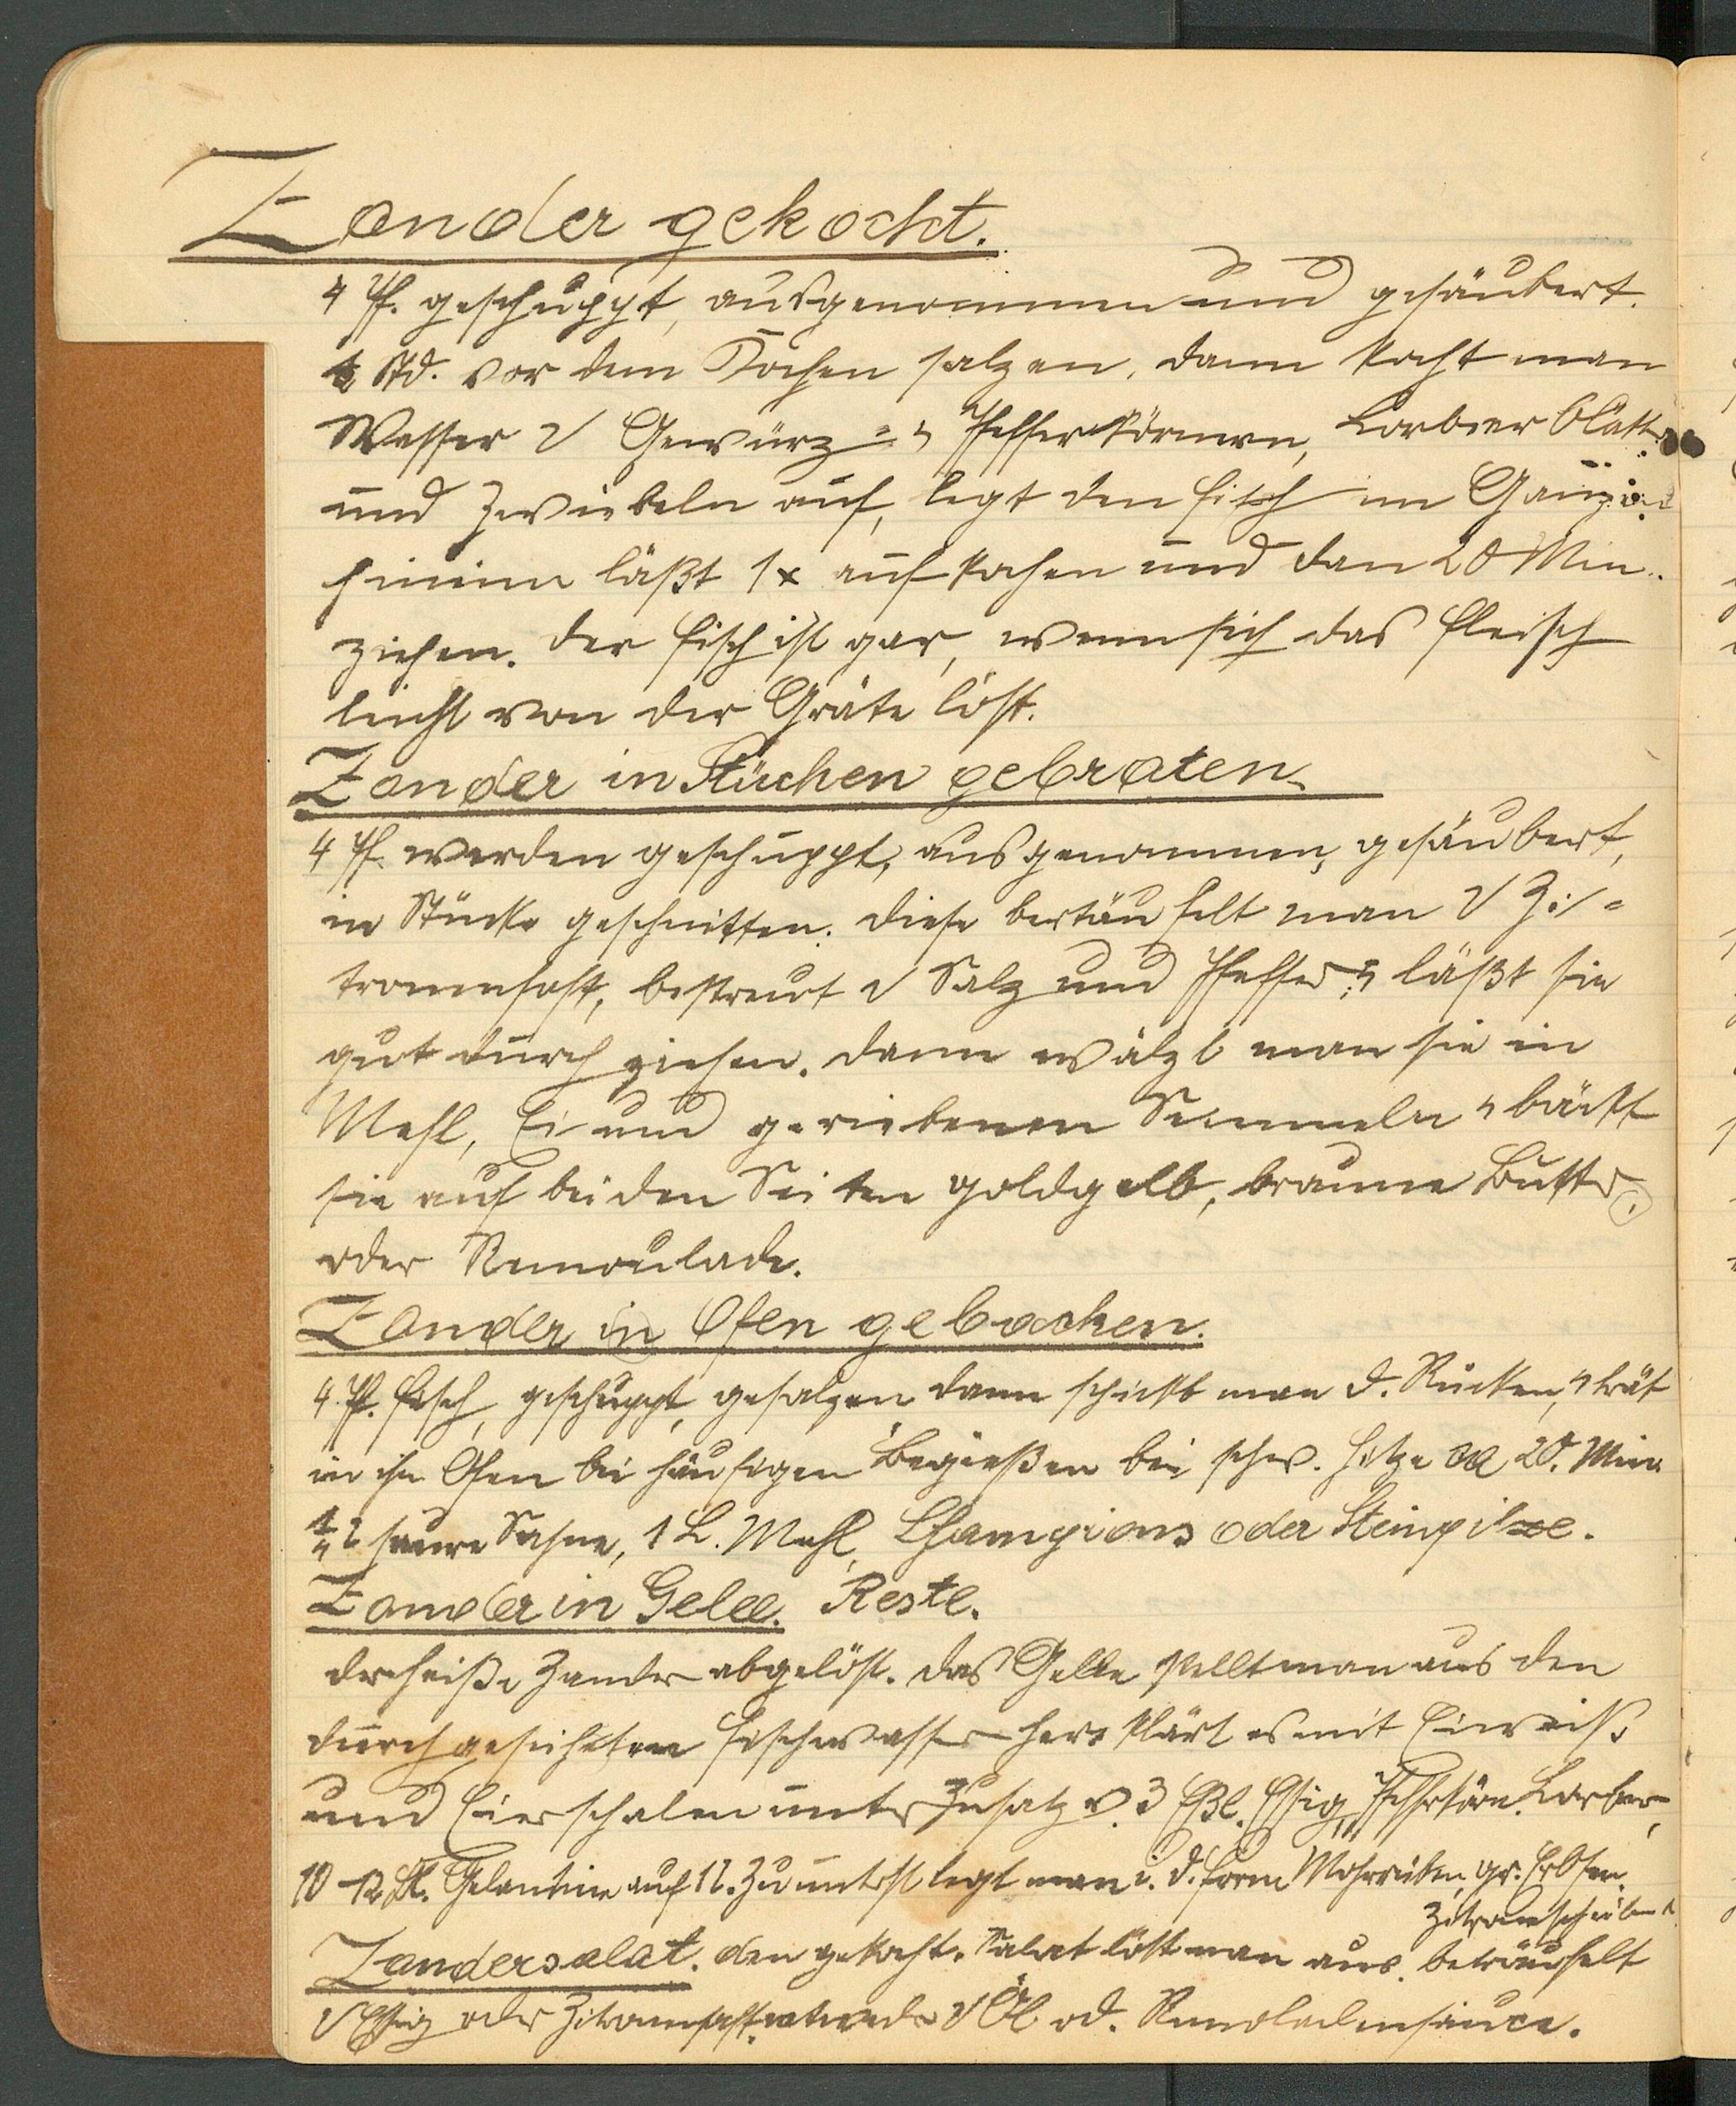 Zander gekocht.
4 Pf. geschuppt, ausgenommen und gesäubert.
½ Std. vor dem Kochen salzen, dann kocht man
Wasser Gewürz= Pfefferkörnern, Lorbeerblätt
und Zwiebeln auf, legt den Fisch im Ganzen
hinein läßt 1x aufkochen und dan 20 Min.
ziehen. Der Fisch ist gar, wenn sich das Fleisch
leicht von der Gräte löst.
Zander in Stücken gebraten
4 Pf. werden geschuppt, ausgenommen, gesäubert,
in Stücke geschnitten. Diese beträufelt man Zi-
tronensaft, bestreut Salz und Pfeffer läßt sie
gut durchziehen. Dann wälzt man sie in
Mehl, Ei und geriebenen Semmeln bäckt
sie auf beiden Seiten goldgelb, braune Butter
oder Remoulade.
Zander in Ofen gebacken.
4 Pf. Fisch, geschuppt, gesalzen dann man d. Rücken,
in Ofen bei häufigen Begießen bei schw. Hitze 20. Min
¼ l saure Sahne, 1 L. Mehl, Champions oder Steinpilze.
Zander in Gelee. Reste.
der heiße Zander abgelöst. Das Gelle stellt man aus den
durchgesiehten Fischwasser her klärt es mit Eiweiß
und Eierschalen unter Zusatz v. 3 Eßl. Essig, Lorbeer,
10-12 Bl. Gelantine auf 1 l. Zu unterst legt man i. d. Form Mohrrüben, gr. Erbsen,
Zitronenscheiben
Zandersalat. den gekocht. Salat löst man aus. beträufelt
Essig oder Zitronensaft. entweder Öl od. Remoladensauce.